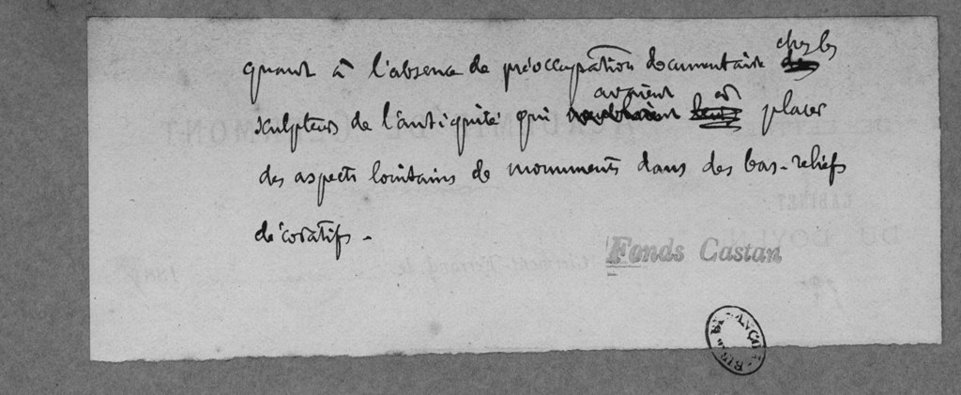 quant à l'absence de préoccupation documentaire chez les
sculpteurs de l'antiquité qui avaient placer
des aspects lointains de monuments dans des bas-reliefs
décoratifs -
Fonds Castan